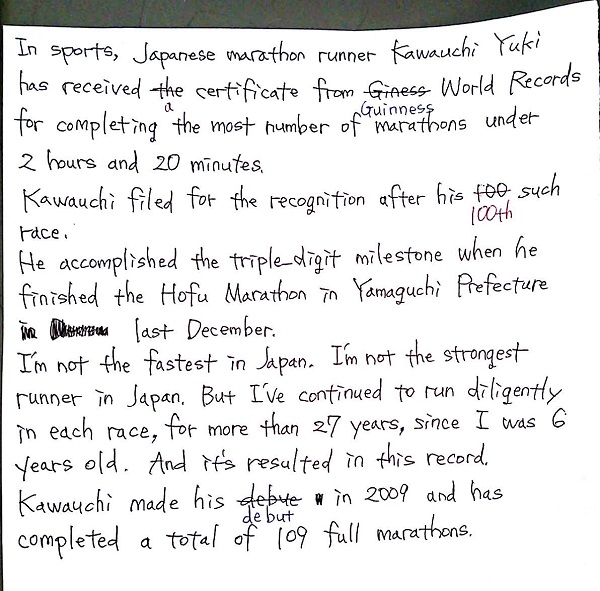 In sports, Japanese marathon runner Kawauchi Yuki
has received the a certificate from Giness Guinness World Records
for completing the most number of marathons under
2 hours and 20 minutes.
Kawauchi filed for the recognition after his 100 100th such
race.
He accomplished the triple-digit milestone when he
finished the Hofu Marathon in Yamaguchi Prefecture
in last December.
I'm not the fastest in Japan. I'm not the strongest
runner in Japan. But I've continued to run diligently
in each race, for more than 27 years, since I was 6
years old. And it's resulted in this record.
Kawauchi made his debue debut in 2009 and has
completed a total of 109 full marathons.